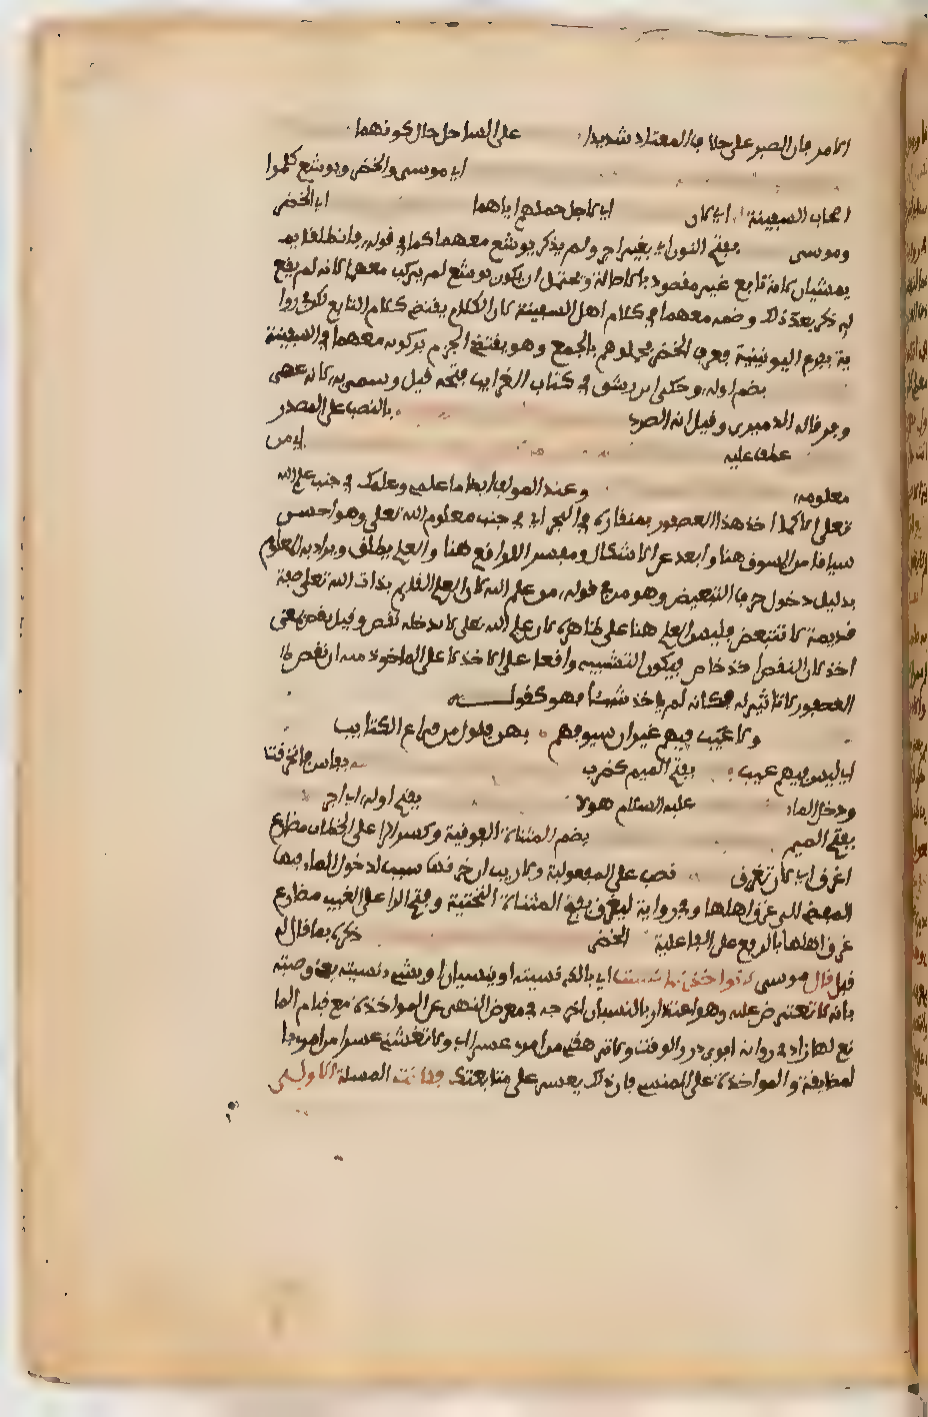 الامر فان الصبر على خلاف المعتاد شديد على الساحل حال كونهما
اي موسى والخضر ويوشع كلموا
اصحاب السفينة اي لان اي لاجل حملهم اياهما اي الخضر
وموسى بفتح النون اي بغير اجر ولم يذكر يوشع معهما كما في قوله فانطلقا
يمشيان لانه تابع غير مقصود بالاصالة ويحتمل ان يكون يوشع لم يركب معهما لانه لم يقع
له ذكر بعد ذلك وضمه معهما في كلام اهل السفينة لان الكلام يقتضي كلام التابع لكن في روا
ية يعرف الخضر فحملوهم بالجمع وهو يقتضي الجزم بركوبه معهما في السفينة
بضم اوله وحكى ابن رشيق في كتاب الغرايب فتحه قيل وسمي به لانه عصى
وفر قاله الدميري وقيل انه الصرد بالنصب على المصدر
عطف عليه اي من
معلومه وعند المولف ايضا ما علمي وعلمك في جنب علم الله
تعلى الا كما اخذ هذا العصفور بمنقاره في البحر اي في جنب معلوم الله تعلى وهو احسن
سياقا من المسوق هنا وابعد عن الاشكال ومفسر للواقع هنا والعلم يطلق ويراد به المعلوم
بدليل دخول حرف التبعيض وهو من في قوله من علم الله لان العلم القايم بذات الله تعلى صفة
قديمة لا تتبعض وليس العلم هنا على ظاهره لان علم الله تعلى لا يدخله نقص وقيل نقص بمعنى
اخذ لان النقص اخذ خاص فيكون التشبيه واقعا على الاخذ لا على الماخوذ منه اذ نقص
العصفور لا تاثير له فكانه لم ياخذ شيئا فهو كقوله
ولا عيب فيهم غير ان سيوفهم بهن فلول من قراع الكتايب
اي ليس فيهم عيب بفتح الميم كضرب بفاس فانخرقت
ودخل الماء عليه السلام هولا بفتح اوله اي اجر
بفتح الميم بضم المثناة الفوقية وكسر الرا على الخطاب مضارع
اغرق اي لان تغرق نصب على المفعولية ولا ريب ان خرقها سبب لدخول الماء فيها
المفضي الى غرق اهلها وفي رواية ليغرق بفتح المثناة التحتية وفتح الرا على الغيب مضارع
غرق اهلها بالرفع على الفاعلية الخضر ذكره بما قال له
قبل قال موسى لا تواخذني بما نسيت اي بالذي نسيته او بنسياني او بشيء نسيته يعني وصيته
بانه لا تعترض عليه وهو اعتذار بالنسيان اخرجه في معرض النهي عن المواخذة مع قيام الما
نع لها زاد في رواية ابوي ذر والوقت ولا ترهقني من امري عسرا اي ولا تغشني عسرا من امري با
لمضايقة والمواخذة على المنسي فان ذلك يعسر علي متابعتك فكانت المسلة الاولى